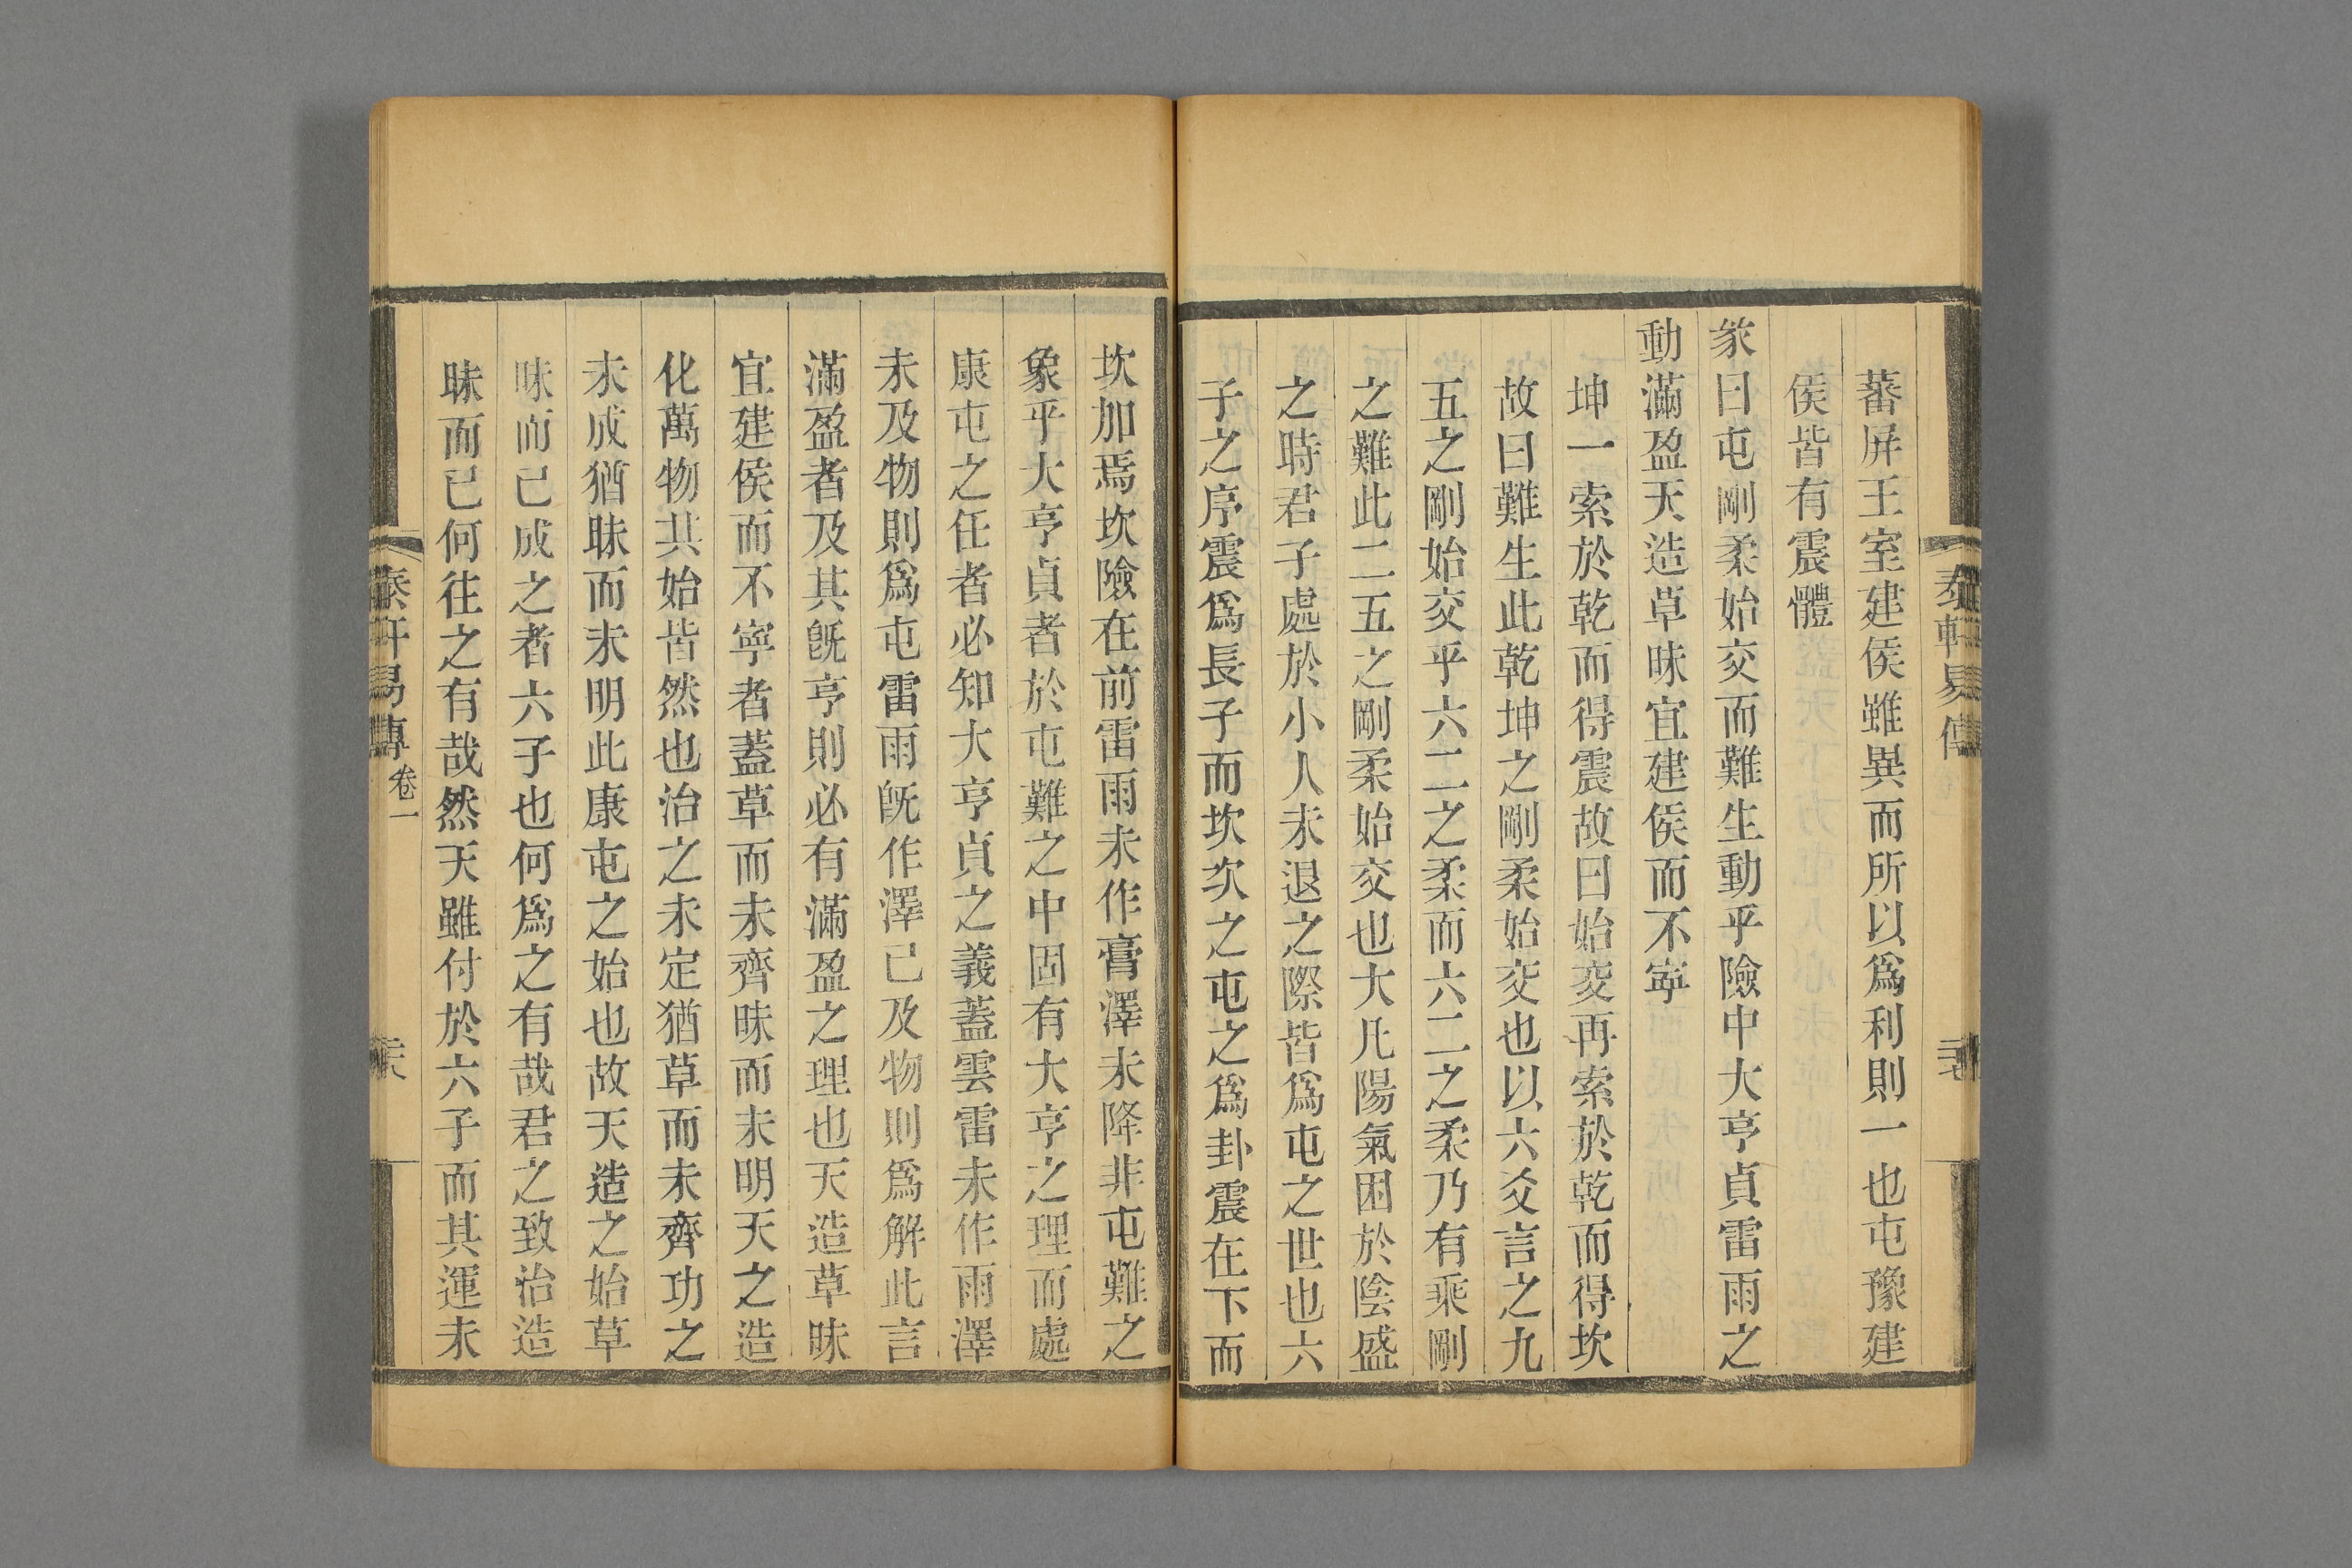 蕃屏王室建侯雖異而所以爲利則一也屯豫建
侯皆有震體
彖曰屯剛柔始交而難生動乎險中大亨貞雷雨之
動滿盈天造草昧宜建侯而不寧
坤一索於乾而得震故曰始交再索於乾而得坎
故曰難生此乾坤之剛柔始交也以六爻言之九
五之剛始交乎六二之柔而六二之柔乃有乘剛
之難此二五之剛柔始交也大凡陽氣困於陰盛
之時君子處於小人未退之際皆爲屯之世也六
子之序震爲長子而坎次之屯之爲卦震在下而
坎加焉坎險在前雷雨未作膏澤未降非屯難之
象乎大亨貞者於屯難之中固有大亨之理而處
康屯之任者必知大亨貞之義蓋雲雷未作雨澤
未及物則爲屯雷雨旣作澤已及物則爲解此言
滿盈者及其旣亨則必有滿盈之理也天造草昧
宜建侯而不寧者蓋草而未齊昧而未明天之造
化萬物共始皆然也治之未定猶草而未齊功之
未成猶昧而未明此康屯之始也故天造之始草
昧而已成之者六子也何爲之有哉君之致治造
昧而已何往之有哉然天雖付於六子而其運未
易傳 卷一